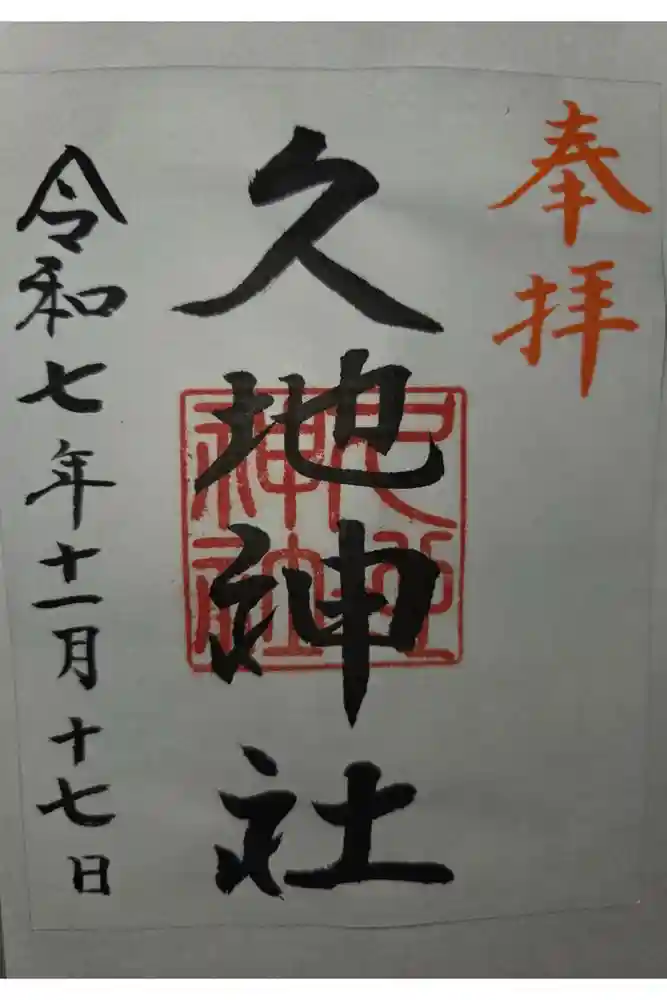 奉拝
久地神社
久地神社
令和七年十一月十七日